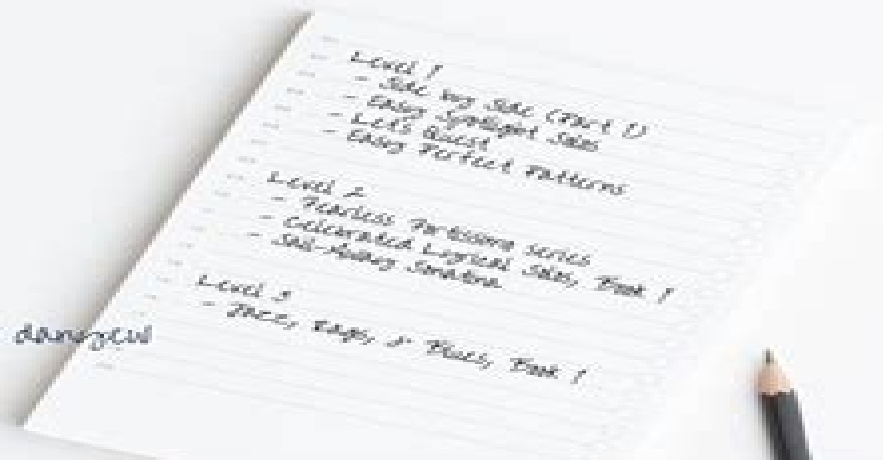 Level 1
- Side by Side (Part 1)
- Easy Spotlight Solos
- Let's Quest
- Easy Perfect Patterns
Level 2
- Fearless Fortissimo series
- Celebrated Lyrical Solos, Book 1
- Sail-Away Sonatina
Level 3
- Jazz, Rags, & Blues, Book 1